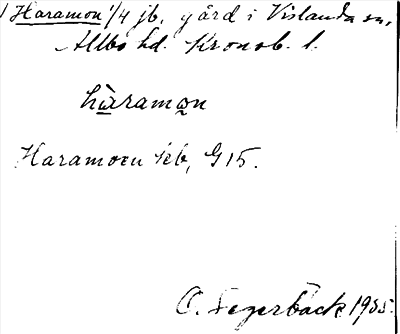 Haramon 1/4 jb. gård i Vislanda sn,
Allbo hd. Kronob. l.
hàramo̰n
Haramoen jeb, G15.
O. Segerbäck 1935.